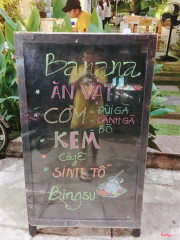 Banana
ĂN VẶT
CƠM - ĐÙI GÀ
- CÁNH GÀ
- BÒ
KEM
Cafe
SINH TỐ
Bingsu